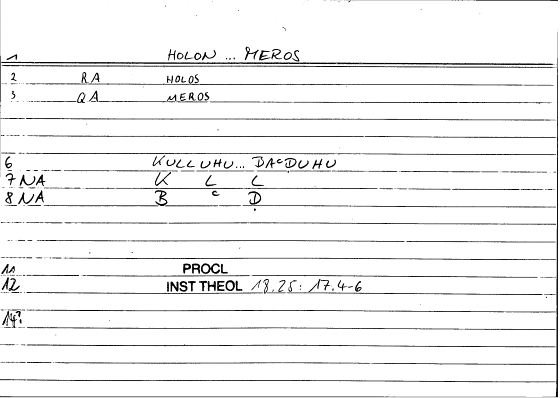 1 HOLON ... MEROS
2 RA HOLOS
3 QA MEROS
6 KULLUHU... BAʿḌUHU
7 NA K L L
8 NA B ʿ Ḍ
11 PROCL
12 INST THEOL 18.25: 17.4-6
14?